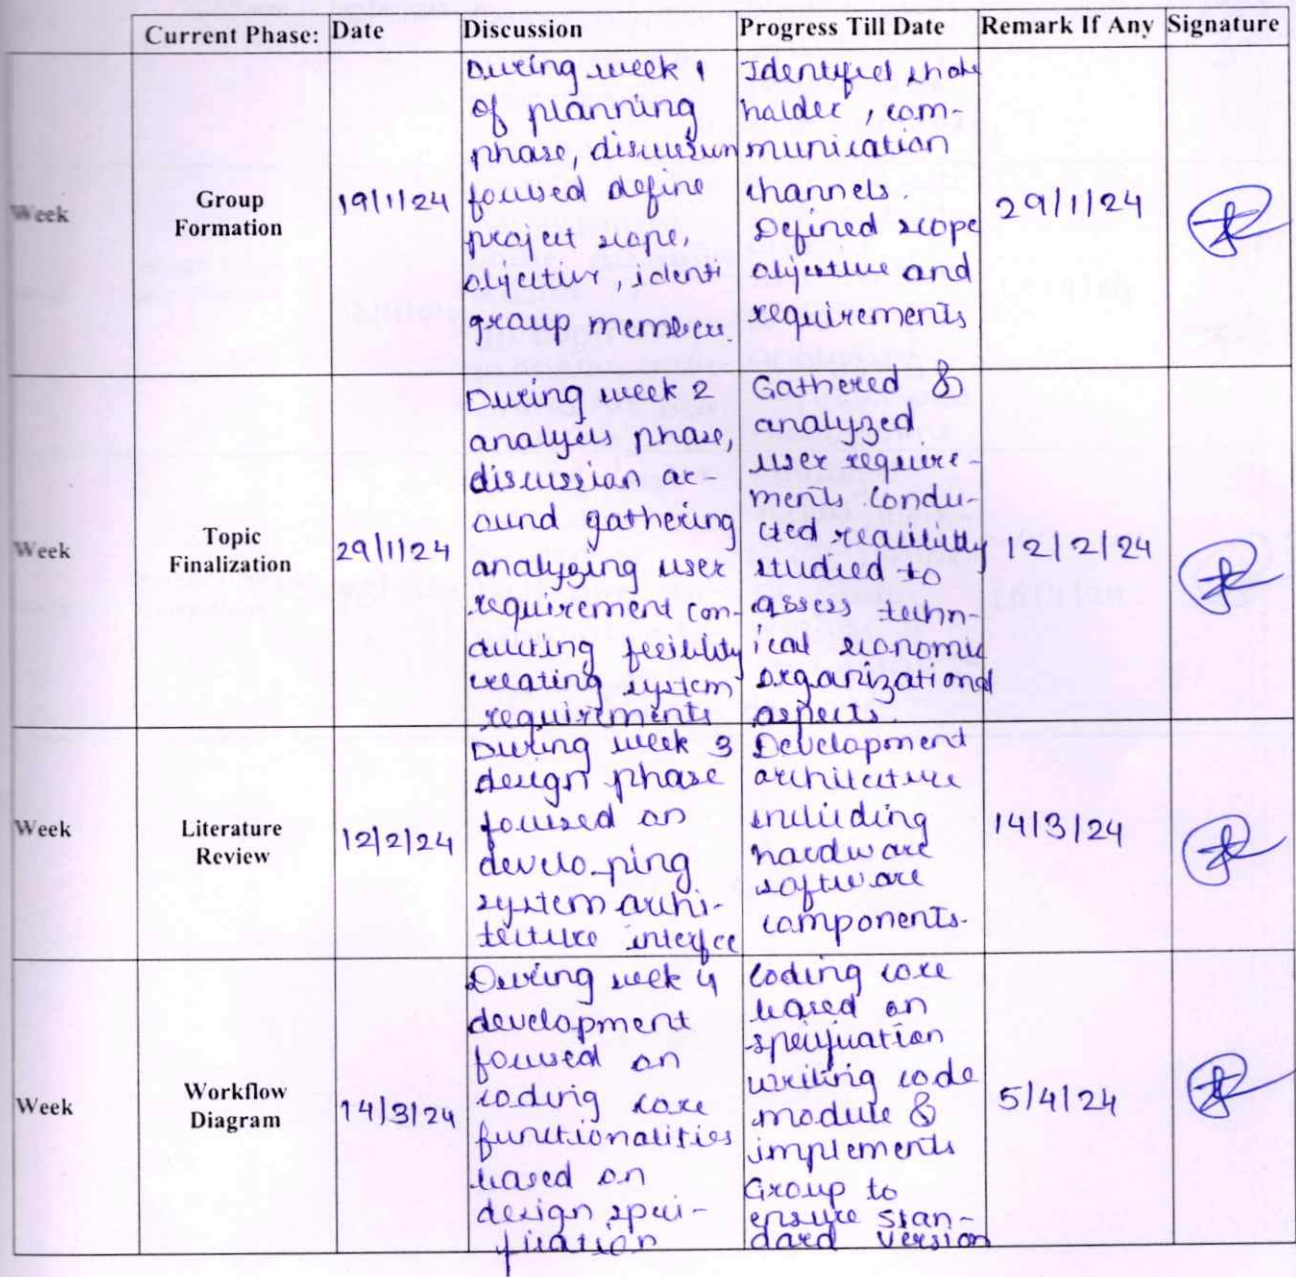 Current Phase: Date Discussion Progress Till Date Remark If Any Signature
Week
Group
Formation
19/1/24
During week 1
of planning
phase, discussion
focused define
project scope,
objective, identi
group members.
Identified stake
holder, com-
munication
channels.
Defined scope
objective and
requirements
29/1/24
Week
Topic
Finalization
29/1/24
During week 2
analysis phase,
discussion ar-
ound gathering
analyzing user
requirement con-
ducting feesibility
creating system
requirements
Gathered &
analyzed
user require-
ments Condu-
cted
studied to
assess techn-
ical economic
organizational
aspects.
12/2/24
Week
Literature
Review
12/2/24
During week 3
design phase
focused on
develo-ping
system archi-
tecture interfce
Development
architecture
including
hardware
software
components.
14/3/24
Week
Workflow
Diagram
14/3/24
During week 4
development
focused on
coding core
functionalities
based on
design speci-
fication
Coding core
based on
specification
writing code
module &
implements
Group to
ensure stan-
dard version
5/4/24